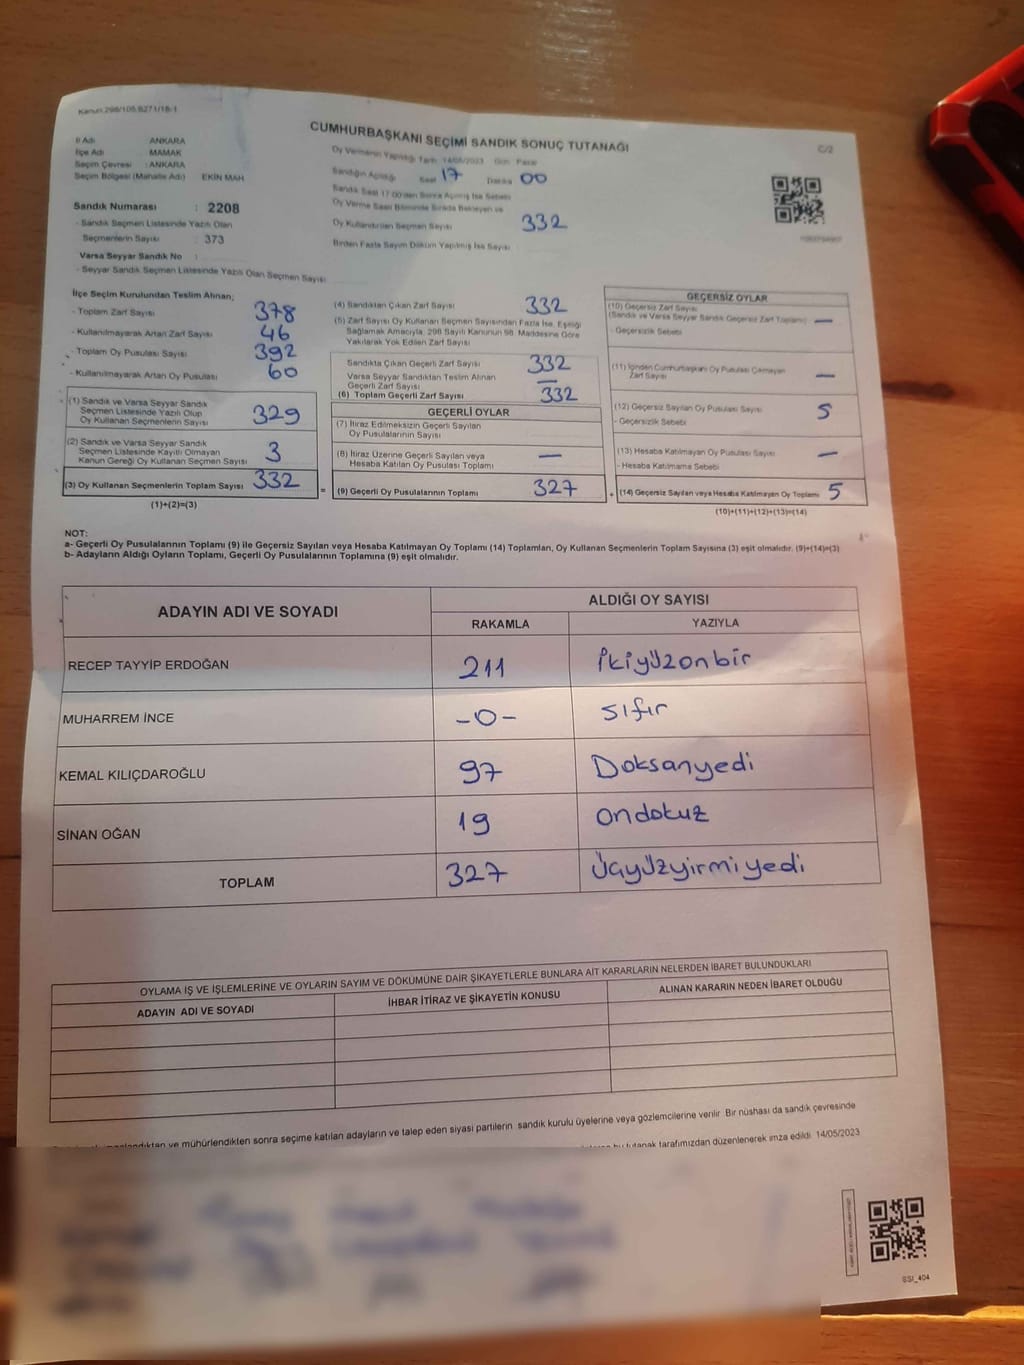 Kanun 298/105,6271/18-1
CUMHURBAŞKANI SEÇİMİ SANDIK SONUÇ TUTANAĞI
C/2
İl Adı : ANKARA
İlçe Adı : MAMAK
Seçim Çevresi : ANKARA
Seçim Bölgesi (Mahalle Adı) EKİN MAH
Sandık Numarası : 2208
- Sandık Seçmen Listesinde Yazılı Olan
Seçmenlerin Sayısı : 373
Varsa Seyyar Sandık No :
- Seyyar Sandık Seçmen Listesinde Yazılı Olan Seçmen Sayısı
Oy Vermenin Yapıldığı Tarih 14/05/2023 Gün Pazar
Sandığın Açıldığı Saat 17 Dakika 00
Sandık Saat 17:00'den Sonra Açılmış İse Sebebi
Oy Verme Saati Bitiminde Sırada Bekleyen ve
Oy Kullandırılan Seçmen Sayısı 332
Birden Fazla Sayım Döküm Yapılmış İse Sayısı
İlçe Seçim Kurulundan Teslim Alınan;
- Toplam Zarf Sayısı 378
- Kullanılmayarak Artan Zarf Sayısı 46
- Toplam Oy Pusulası Sayısı 392
- Kullanılmayarak Artan Oy Pusulası 60
(1) Sandık ve Varsa Seyyar Sandık
Seçmen Listesinde Yazılı Olup
Oy Kullanan Seçmenlerin Sayısı 329
(2) Sandık ve Varsa Seyyar Sandık
Seçmen Listesinde Kayıtlı Olmayan
Kanun Gereği Oy Kullanan Seçmen Sayısı 3
(3) Oy Kullanan Seçmenlerin Toplam Sayısı 332
(1)+(2)=(3)
=
(4) Sandıktan Çıkan Zarf Sayısı 332
(5) Zarf Sayısı Oy Kullanan Seçmen Sayısından Fazla İse, Eşitliği
Sağlamak Amacıyla, 298 Sayılı Kanunun 98. Maddesine Göre
Yakılarak Yok Edilen Zarf Sayısı
Sandıkta Çıkan Geçerli Zarf Sayısı 332
Varsa Seyyar Sandıktan Teslim Alınan
Geçerli Zarf Sayısı —
(6) Toplam Geçerli Zarf Sayısı 332
GEÇERLİ OYLAR
(7) İtiraz Edilmeksizin Geçerli Sayılan
Oy Pusulalarının Sayısı
(8) İtiraz Üzerine Geçerli Sayılan veya
Hesaba Katılan Oy Pusulası Toplamı —
(9) Geçerli Oy Pusulalarının Toplamı 327
+
GEÇERSİZ OYLAR
(10) Geçersiz Zarf Sayısı
(Sandık ve Varsa Seyyar Sandık Geçersiz Zarf Toplamı) —
- Geçersizlik Sebebi
(11) İçinden Cumhurbaşkanı Oy Pusulası Çıkmayan
Zarf Sayısı —
(12) Geçersiz Sayılan Oy Pusulası Sayısı 5
- Geçersizlik Sebebi
(13) Hesaba Katılmayan Oy Pusulası Sayısı —
- Hesaba Katılmama Sebebi
(14) Geçersiz Sayılan veya Hesaba Katılmayan Oy Toplamı 5
(10)+(11)+(12)+(13)=(14)
NOT:
a- Geçerli Oy Pusulalarının Toplamı (9) ile Geçersiz Sayılan veya Hesaba Katılmayan Oy Toplamı (14) Toplamları, Oy Kullanan Seçmenlerin Toplam Sayısına (3) eşit olmalıdır. (9)+(14)=(3)
b- Adayların Aldığı Oyların Toplamı, Geçerli Oy Pusulalarının Toplamına (9) eşit olmalıdır.
ADAYIN ADI VE SOYADI
ALDIĞI OY SAYISI
RAKAMLA YAZIYLA
RECEP TAYYİP ERDOĞAN 211 ikiyüzonbir
MUHARREM İNCE -0- sıfır
KEMAL KILIÇDAROĞLU 97 Doksanyedi
SİNAN OĞAN 19 ondokuz
TOPLAM 327 üçyüzyirmiyedi
OYLAMA İŞ VE İŞLEMLERİNE VE OYLARIN SAYIM VE DÖKÜMÜNE DAİR ŞİKAYETLERLE BUNLARA AİT KARARLARIN NELERDEN İBARET BULUNDUKLARI
ADAYIN ADI VE SOYADI İHBAR İTİRAZ VE ŞİKAYETİN KONUSU ALINAN KARARIN NEDEN İBARET OLDUĞU
ve mühürlendikten sonra seçime katılan adayların ve talep eden siyasi partilerin sandık kurulu üyelerine veya gözlemcilerine verilir. Bir nüshası da sandık çevresinde
bu tutanak tarafımızdan düzenlenerek imza edildi. 14/05/2023
SSI_404